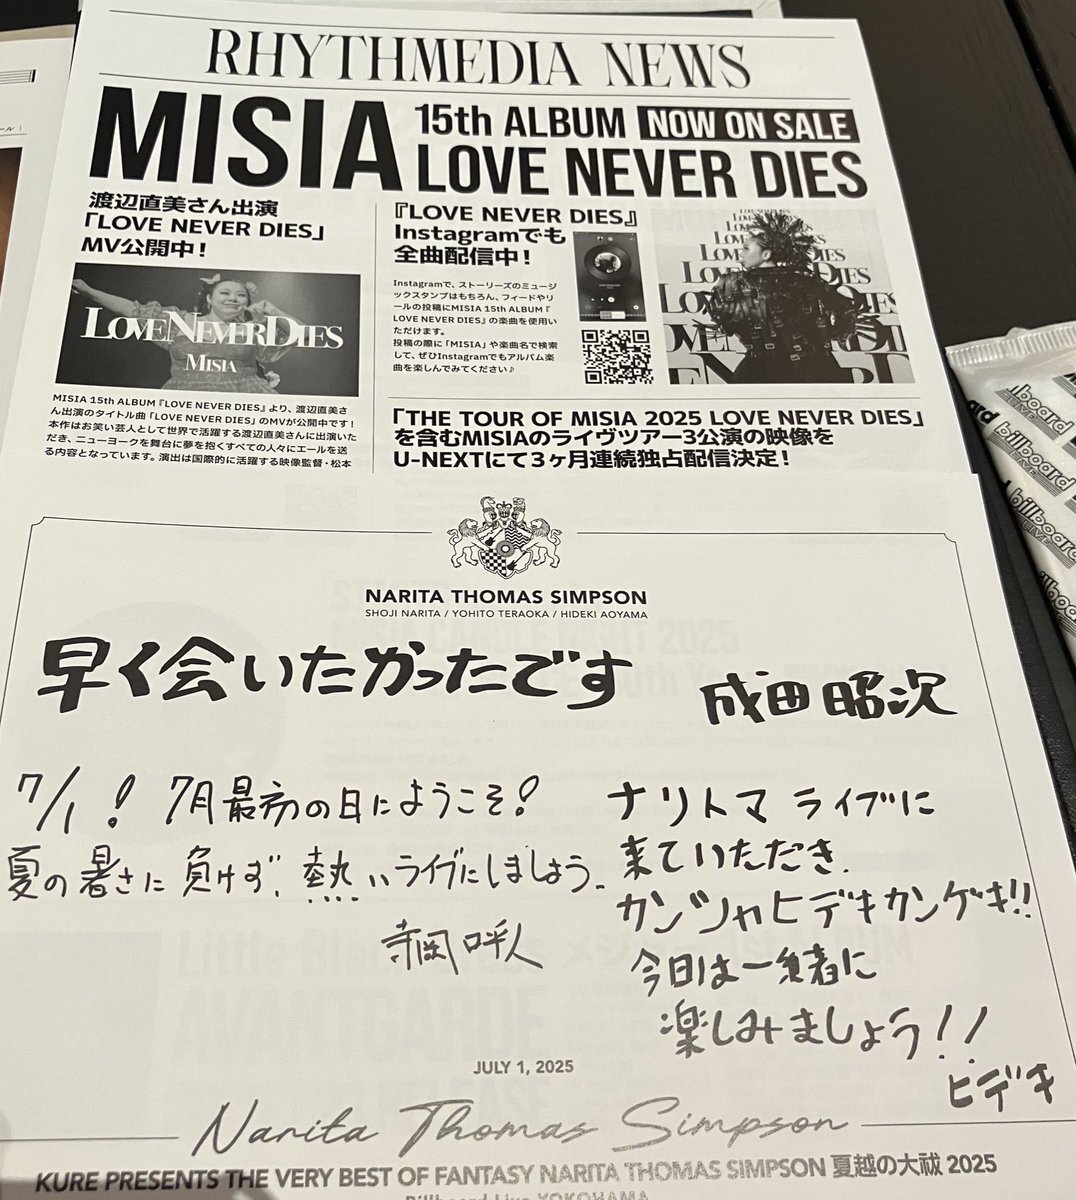 RHYTHMEDIA NEWS
MISIA
15th ALBUM NOW ON SALE
LOVE NEVER DIES
渡辺直美さん出演
「LOVE NEVER DIES」
MV公開中！
LOVE NEVER DIES
MISIA
MISIA 15th ALBUM『LOVE NEVER DIES』より、渡辺直美さ
ん出演のタイトル曲「LOVE NEVER DIES」のMVが公開中です！
本作はお笑い芸人として世界で活躍する渡辺直美さんに出演いた
だき、ニューヨークを舞台に夢を抱くすべての人々にエールを送
る内容となっています。演出は国際的に活躍する映像監督・松本
『LOVE NEVER DIES』
Instagramでも
全曲配信中！
Instagramで、ストーリーズのミュージ
ックスタンプはもちろん、フィードやリ
ールの投稿にMISIA 15th ALBUM『
LOVE NEVER DIES』の楽曲を使用い
ただけます。
投稿の際に「MISIA」や楽曲名で検索
して、ぜひInstagramでもアルバム楽
曲を楽しんでみてください♪
「THE TOUR OF MISIA 2025 LOVE NEVER DIES」
を含むMISIAのライヴツアー3公演の映像を
U-NEXTにて3ヶ月連続独占配信決定！
billboard
LIVE
billboard
LIVE
billboard
NARITA THOMAS SIMPSON
SHOJI NARITA / YOHITO TERAOKA / HIDEKI AOYAMA
早く会いたかったです
成田昭次
7/1！ 7月最初の日にようこそ！
夏の暑さに負けず、熱いライブにしましょう。
寺岡呼人
ナリトマ ライブに
来ていただき、
カンゲキヒデキカンゲキ!!
今日は一緒に
楽しみましょう!!
ヒデキ
JULY 1, 2025
Narita Thomas Simpson
KURE PRESENTS THE VERY BEST OF FANTASY NARITA THOMAS SIMPSON 夏越の大祓 2025
Billboard Live YOKOHAMA